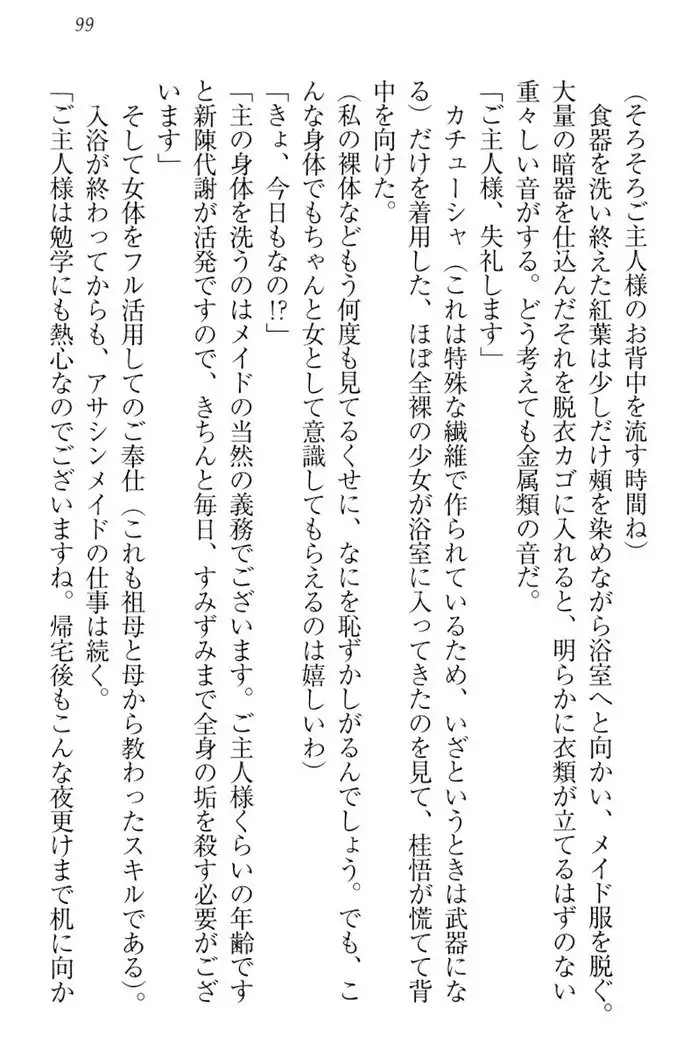 99
(そろそろご主人様のお背中を流す時間ね)
　食器を洗い終えた紅葉は少しだけ頬を染めながら浴室へと向かい、メイド服を脱ぐ。
大量の暗器を仕込んだそれを脱衣カゴに入れると、明らかに衣類が立てるはずのない
重々しい音がする。どう考えても金属類の音だ。
「ご主人様、失礼します」
　カチューシャ（これは特殊な繊維で作られているため、いざというときは武器にな
る）だけを着用した、ほぼ全裸の少女が浴室に入ってきたのを見て、桂悟が慌てて背
中を向けた。
(私の裸体などもう何度も見てるくせに、なにを恥ずかしがるんでしょう。でも、こ
んな身体でもちゃんと女として意識してもらえるのは嬉しいわ)
「きょ、今日もなの!?」
「主の身体を洗うのはメイドの当然の義務でございます。ご主人様くらいの年齢です
と新陳代謝が活発ですので、きちんと毎日、すみずみまで全身の垢を殺す必要がござ
います」
　そして女体をフル活用してのご奉仕（これも祖母と母から教わったスキルである）。
　入浴が終わってからも、アサシンメイドの仕事は続く。
「ご主人様は勉学にも熱心なのでございますね。帰宅後もこんな夜更けまで机に向か